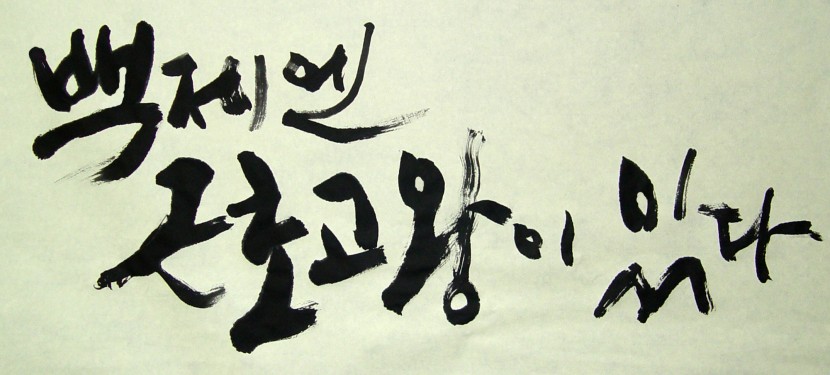 백제엔
근초고왕이 있다